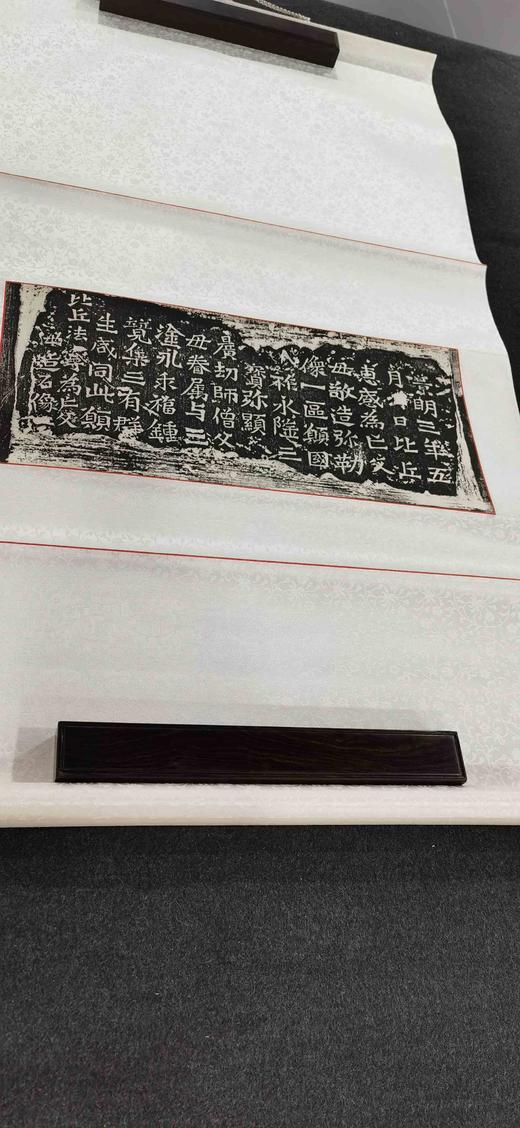 景明三年五
月日比丘
惠感為亡父
母敬造弥勒
像一區願國
祚永隆三
寶弥顯
曠劫師僧父
母眷属与三
塗永乖福鍾
竟集三有群
生咸同此願
比丘法寧為
造石像